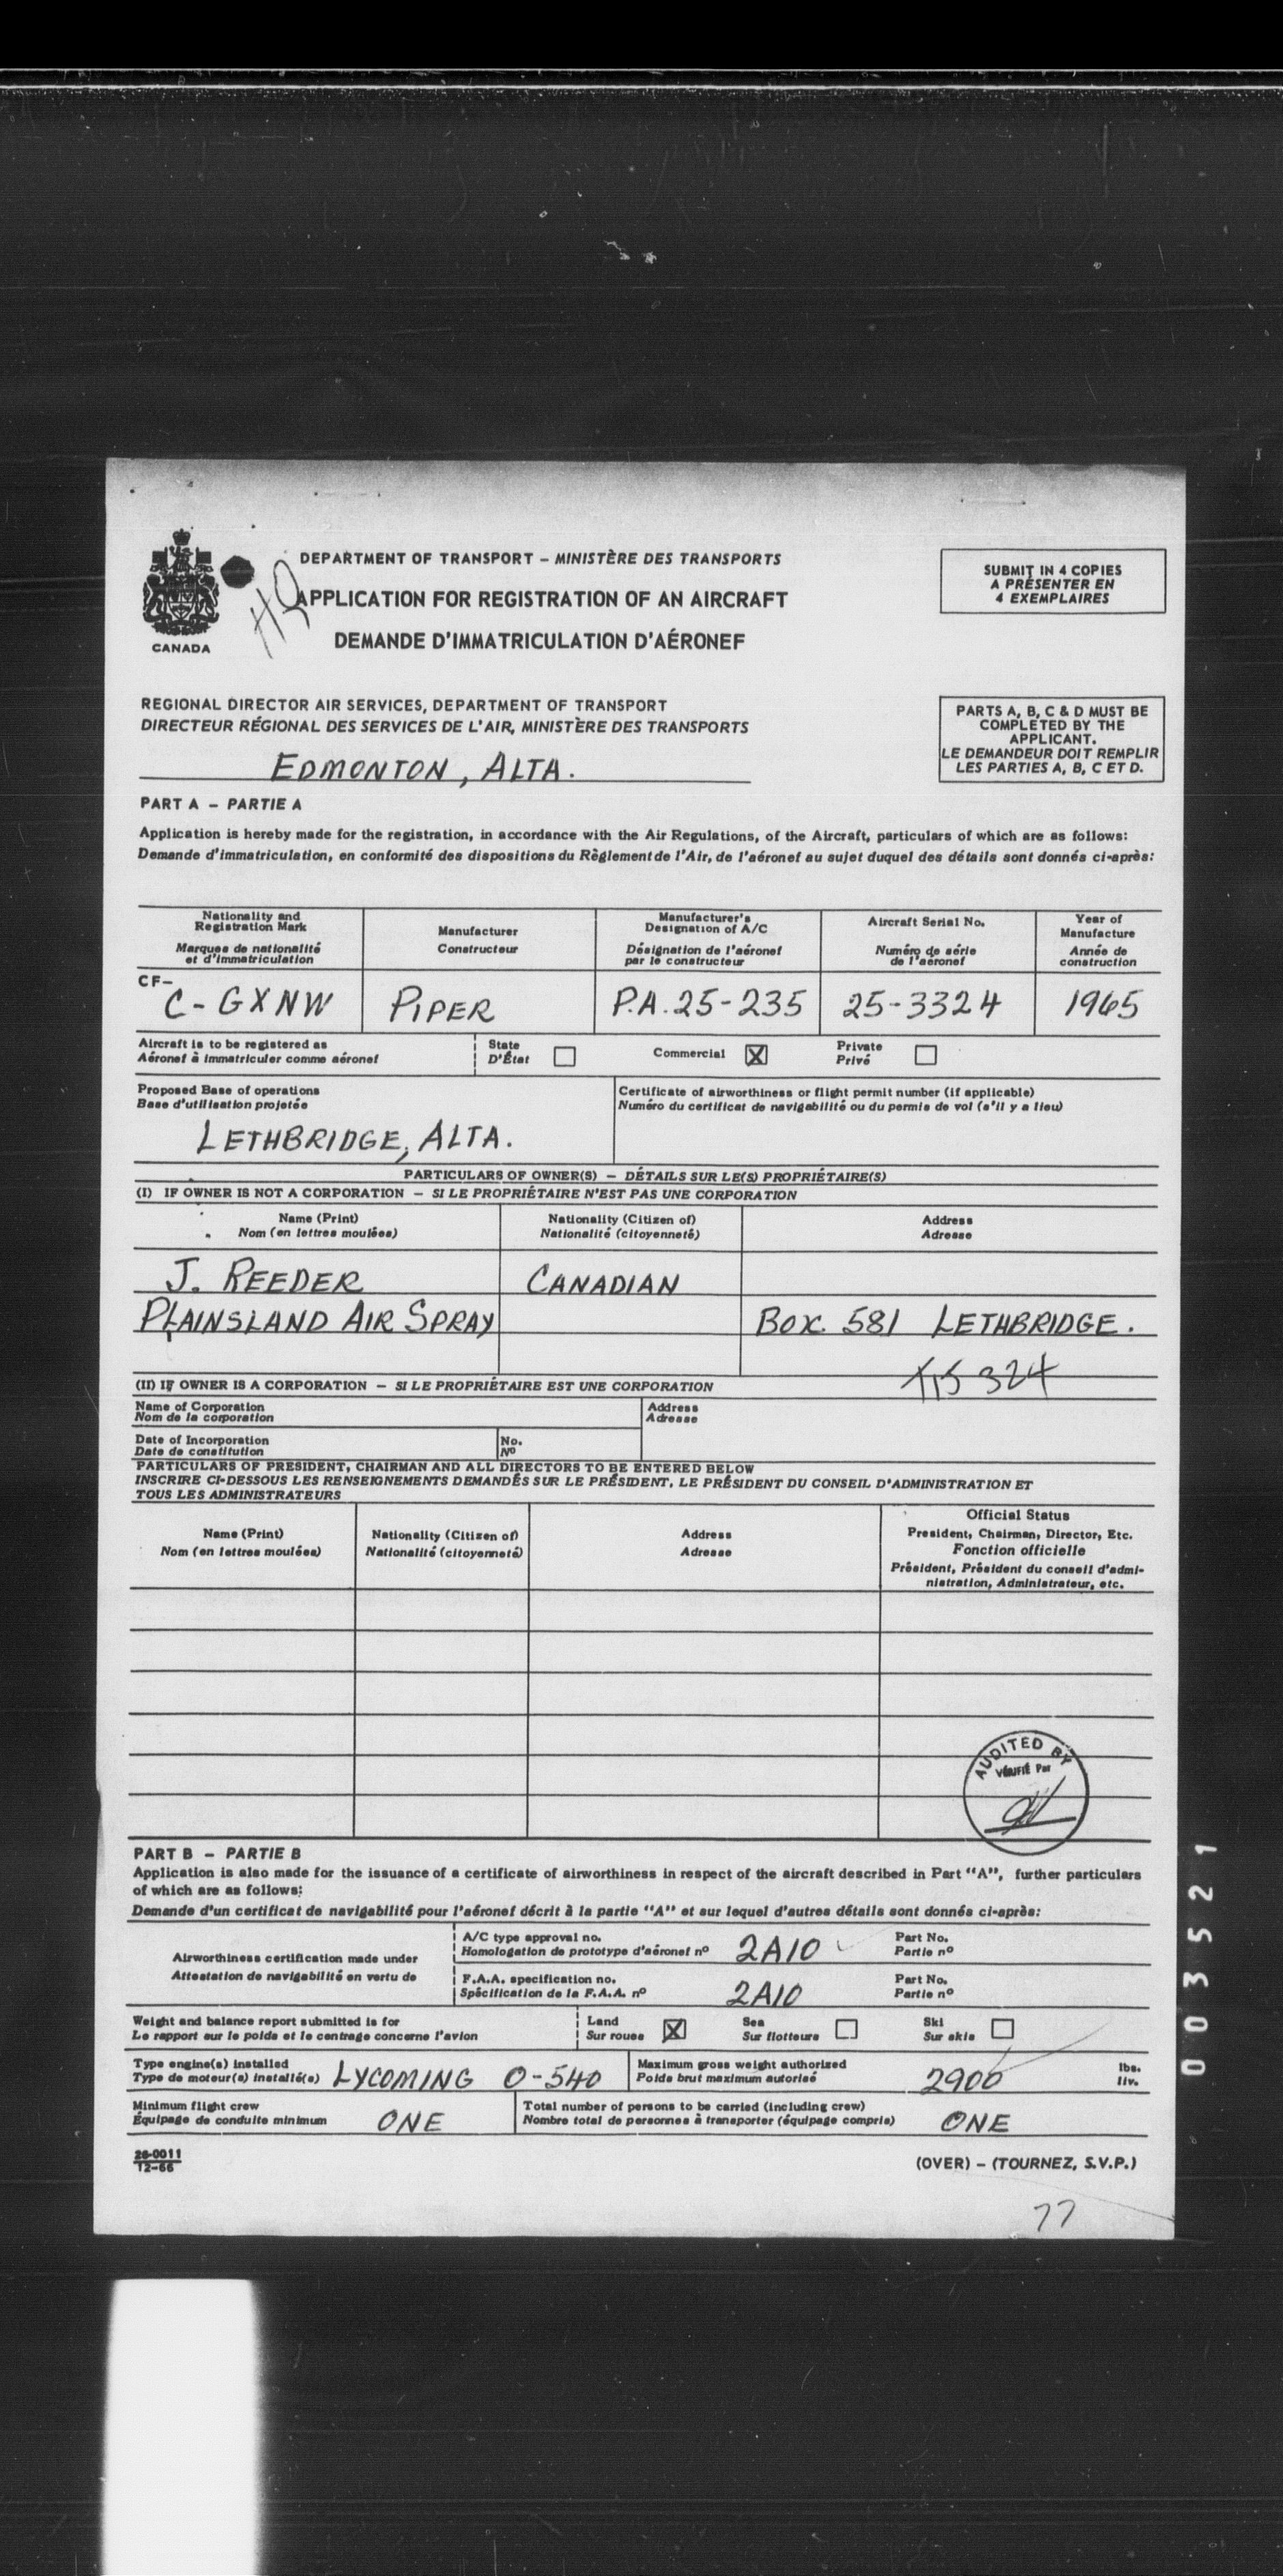 DEPARTMENT OF TRANSPORT – MINISTÈRE DES TRANSPORTS
HQ
APPLICATION FOR REGISTRATION OF AN AIRCRAFT
DEMANDE D'IMMATRICULATION D'AÉRONEF
CANADA
SUBMIT IN 4 COPIES
A PRÉSENTER EN
4 EXEMPLAIRES
REGIONAL DIRECTOR AIR SERVICES, DEPARTMENT OF TRANSPORT
DIRECTEUR RÉGIONAL DES SERVICES DE L'AIR, MINISTÈRE DES TRANSPORTS
EDMONTON, ALTA.
PARTS A, B, C & D MUST BE
COMPLETED BY THE
APPLICANT.
LE DEMANDEUR DOIT REMPLIR
LES PARTIES A, B, C ET D.
PART A – PARTIE A
Application is hereby made for the registration, in accordance with the Air Regulations, of the Aircraft, particulars of which are as follows:
Demande d'immatriculation, en conformité des dispositions du Règlement de l'Air, de l'aéronef au sujet duquel des détails sont donnés ci-après:
Nationality and
Registration Mark
Marques de nationalité
et d'immatriculation
Manufacturer
Constructeur
Manufacturer's
Designation of A/C
Désignation de l'aéronef
par le constructeur
Aircraft Serial No.
Numéro de série
de l'aéronef
Year of
Manufacture
Année de
construction
CF–
C-GXNW PIPER P.A.25-235 25-3324 1965
Aircraft is to be registered as
Aéronef à immatriculer comme aéronef
State
D'État
Commercial X
Private
Privé
Proposed Base of operations
Base d'utilisation projetée
LETHBRIDGE, ALTA.
Certificate of airworthiness or flight permit number (if applicable)
Numéro du certificat de navigabilité ou du permis de vol (s'il y a lieu)
PARTICULARS OF OWNER(S) – DÉTAILS SUR LE(S) PROPRIÉTAIRE(S)
(I) IF OWNER IS NOT A CORPORATION – SI LE PROPRIÉTAIRE N'EST PAS UNE CORPORATION
Name (Print)
Nom (en lettres moulées)
Nationality (Citizen of)
Nationalité (citoyenneté)
Address
Adresse
J. REEDER CANADIAN
PLAINSLAND AIR SPRAY BOX 581 LETHBRIDGE.
(II) IF OWNER IS A CORPORATION – SI LE PROPRIÉTAIRE EST UNE CORPORATION
Name of Corporation
Nom de la corporation
Address
Adresse
Date of Incorporation
Date de constitution
No.
Nº
PARTICULARS OF PRESIDENT, CHAIRMAN AND ALL DIRECTORS TO BE ENTERED BELOW
INSCRIRE CI-DESSOUS LES RENSEIGNEMENTS DEMANDÉS SUR LE PRÉSIDENT, LE PRÉSIDENT DU CONSEIL D'ADMINISTRATION ET
TOUS LES ADMINISTRATEURS
Name (Print)
Nom (en lettres moulées)
Nationality (Citizen of)
Nationalité (citoyenneté)
Address
Adresse
Official Status
President, Chairman, Director, Etc.
Fonction officielle
Président, Président du conseil d'admi-
nistration, Administrateur, etc.
AUDITED BY
VÉRIFIÉ Par
PART B – PARTIE B
Application is also made for the issuance of a certificate of airworthiness in respect of the aircraft described in Part "A", further particulars
of which are as follows:
Demande d'un certificat de navigabilité pour l'aéronef décrit à la partie "A" et sur lequel d'autres détails sont donnés ci-après:
Airworthiness certification made under
Attestation de navigabilité en vertu de
A/C type approval no.
Homologation de prototype d'aéronef nº 2A10
Part No.
Partie nº
F.A.A. specification no.
Spécification de la F.A.A. nº 2A10
Part No.
Partie nº
Weight and balance report submitted is for
Le rapport sur le poids et le centrage concerne l'avion
Land
Sur roues X
Sea
Sur flotteurs
Ski
Sur skis
Type engine(s) installed
Type de moteur(s) installé(s) LYCOMING O-540
Maximum gross weight authorized
Poids brut maximum autorisé 2900
lbs.
liv.
Minimum flight crew
Équipage de conduite minimum ONE
Total number of persons to be carried (including crew)
Nombre total de personnes à transporter (équipage compris) ONE
26-0011
12-66
(OVER) – (TOURNEZ, S.V.P.)
77
003521